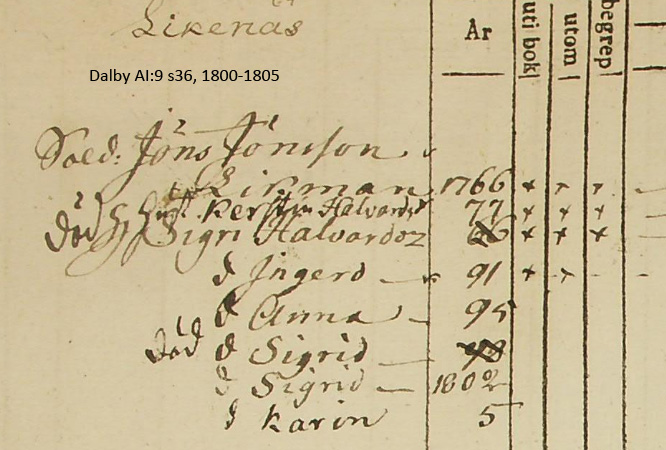 Likenäs
År
uti bok
utom
begrep
Dalby AI:9 s36, 1800-1805
Sold: Jöns Jönsson
Likman 1766
Hust. Kerstin Halvardsd 77
död H Sigri Halvardoz 66
d Ingerd 91
d Anna 95
död d Sigrid 98
d Sigrid 1802
d Karin 5